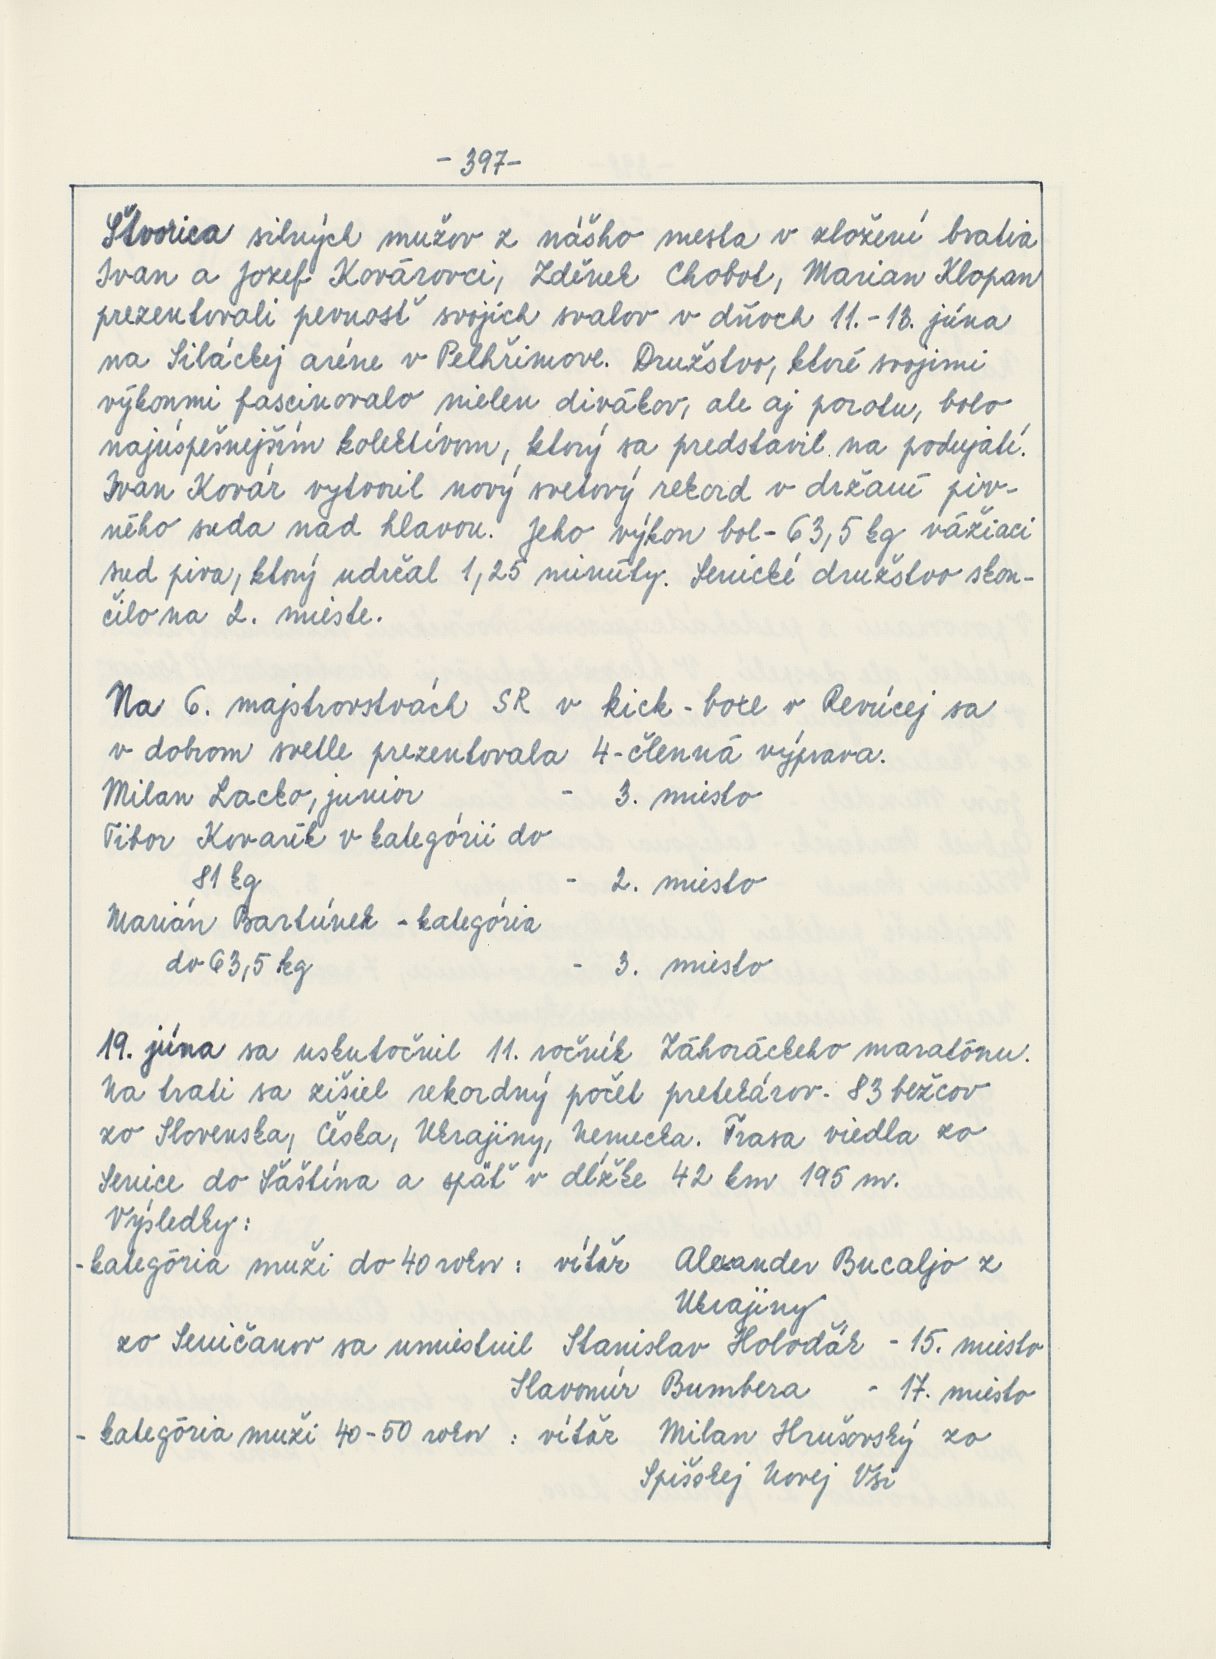 - 397-
Štvorica silných mužov z nášho mesta v zložení bratia
Ivan a Jozef Kovárovci, Zděnek Chobot, Marian Klopan
prezentovali pevnosť svojich svalov v dňoch 11.-13. júna
na Siláckej aréne v Pelhřimove. Družstvo, ktoré svojimi
výkonmi fascinovalo nielen divákov, ale aj porotu, bolo
najúspešnejším kolektívom, ktorý sa predstavil na podujatí.
Ivan Kovár vytvoril nový svetový rekord v držaní piv-
ného suda nad hlavou. Jeho výkon bol - 63,5 kg vážiaci
sud piva, ktorý udržal 1,25 minúty. Senické družstvo skon-
čilo na 2. mieste.
Na 6. majstrovstvách SR v kick - boxe v Revúcej sa
v dobrom svetle prezentovala 4-členná výprava.
Milan Lacko, junior - 3. miesto
Tibor Kovarík v kategórii do
81 kg - 2. miesto
Marián Bartúnek - kategória
do 63,5 kg - 3. miesto
19. júna sa uskutočnil 11. ročník Záhoráckeho maratónu.
Na trati sa zišiel rekordný počet pretekárov - 83 bežcov
zo Slovenska, Česka, Ukrajiny, Nemecka. Trasa viedla zo
Senice do Šaštína a späť v dĺžke 42 km 195 m.
Výsledky:
- kategória muži do 40 rokov : víťaz Alexander Bucaljo z
Ukrajiny
zo Seničanov sa umiestnil Stanislav Holodžák - 15. miesto
Slavomír Bumbera - 17. miesto
- kategória muži 40-50 rokov : víťaz Milan Hrušovský zo
Spišskej Novej Vsi